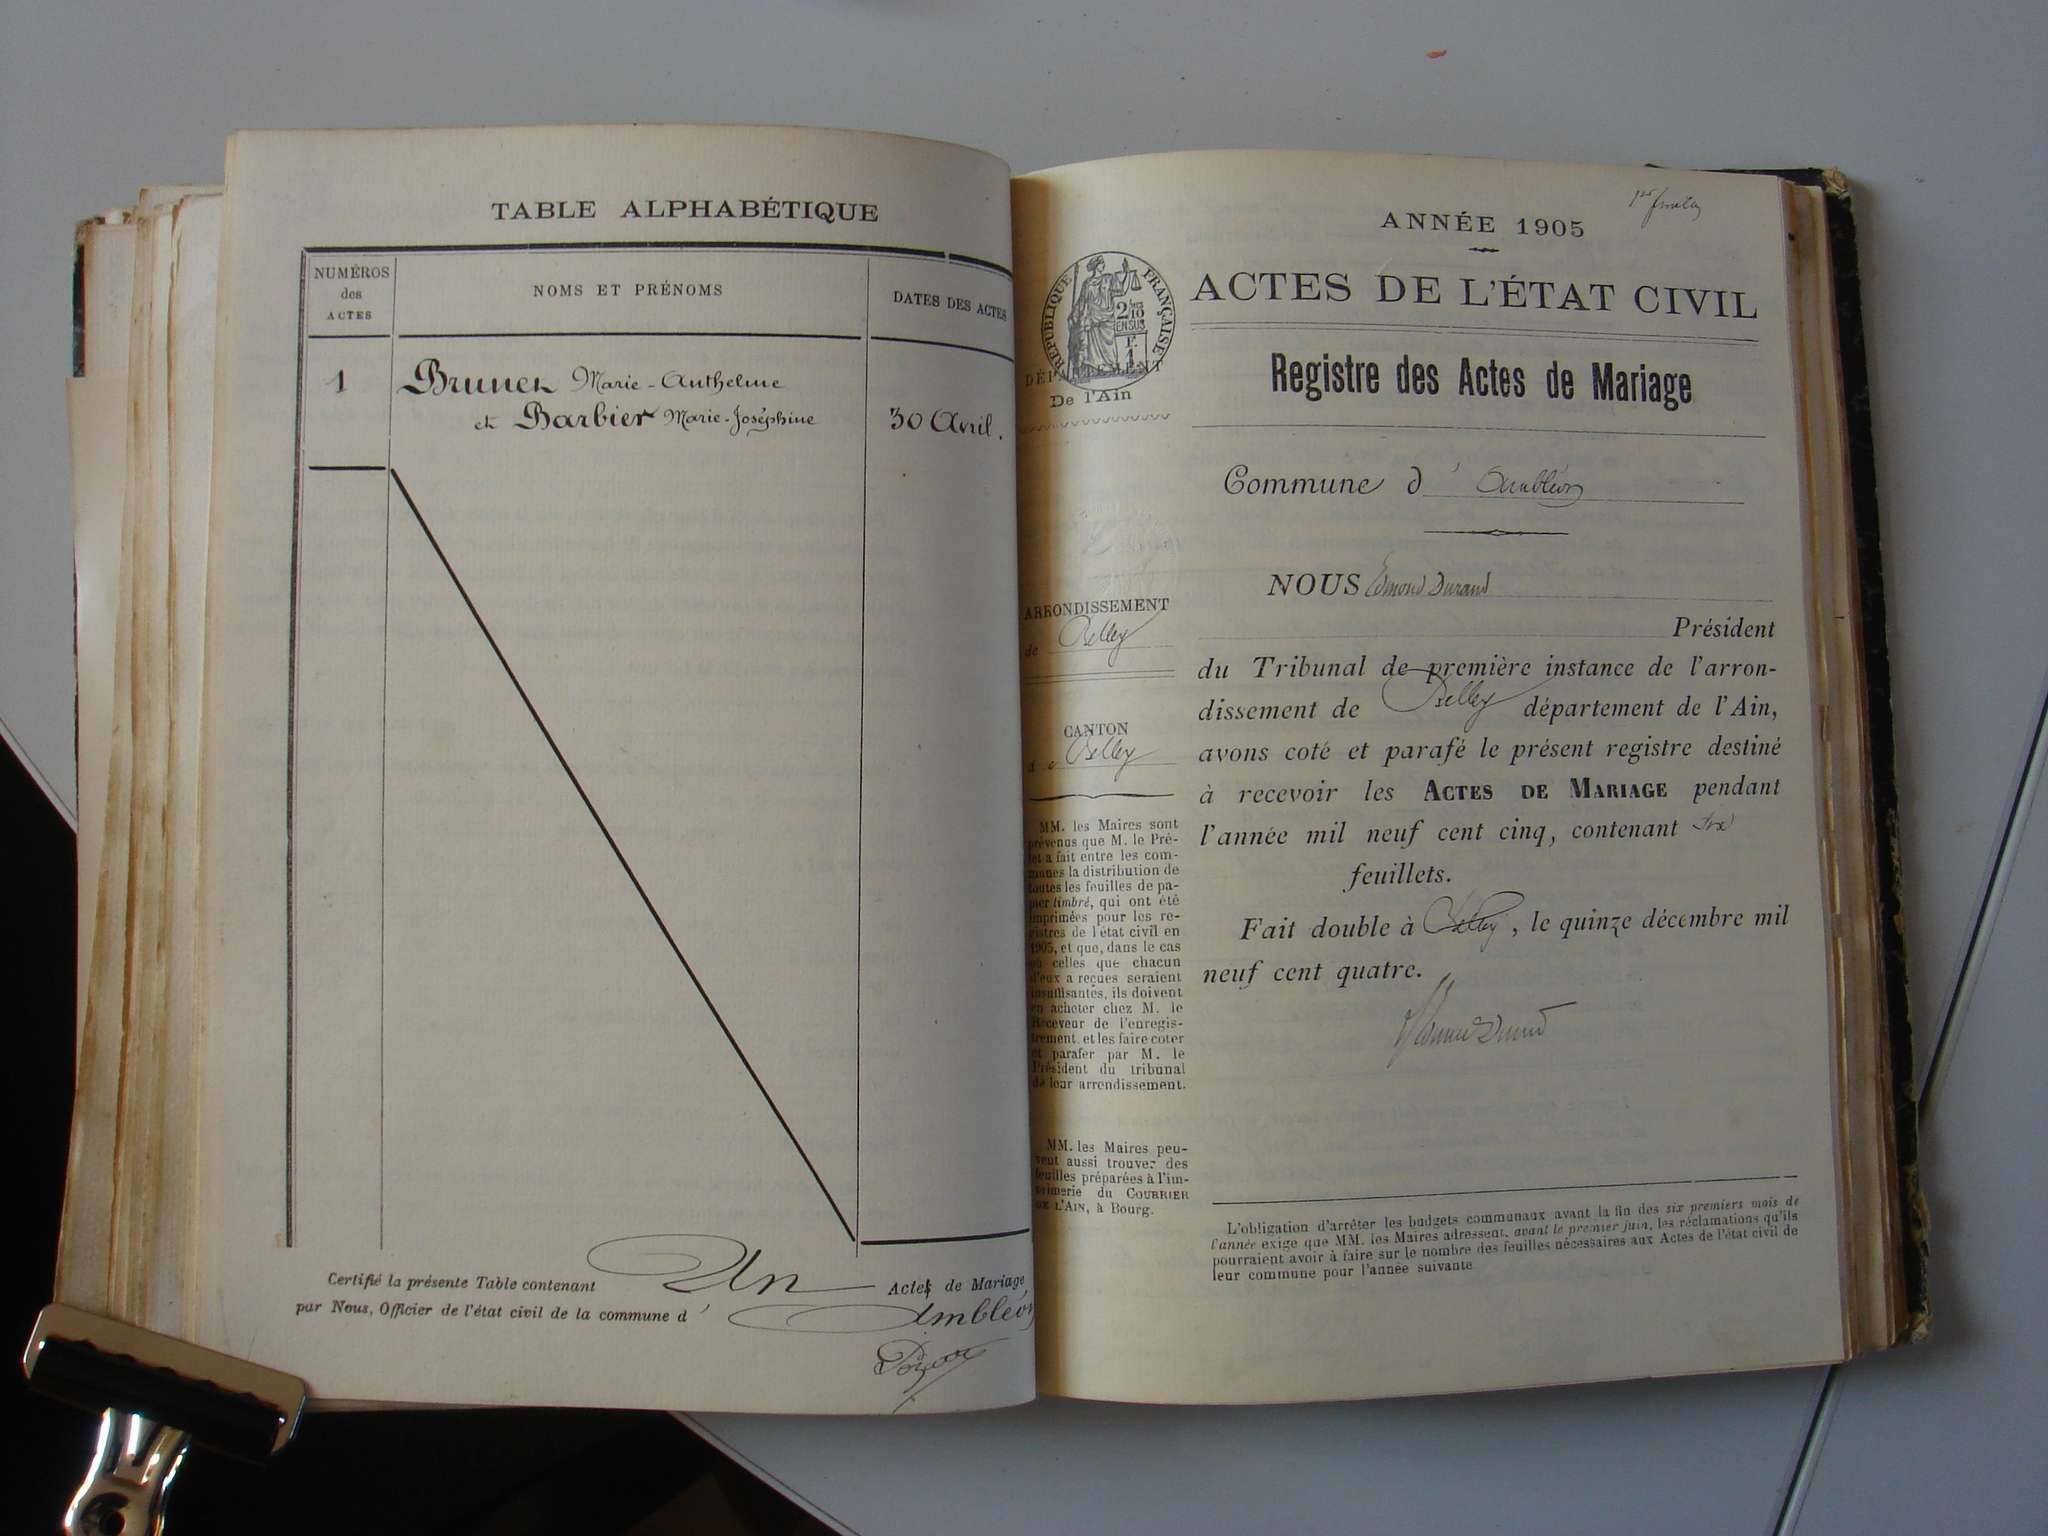 TABLE ALPHABÉTIQUE
NUMÉROS
des
ACTES
NOMS ET PRÉNOMS
DATES DES ACTES
1
Brunet Marie-Anthelme
et Barbier Marie-Joséphine
30 Avril.
Certifié la présente Table contenant Un Actes de Mariage
par Nous, Officier de l'état civil de la commune d' Ambléon
ANNÉE 1905
ACTES DE L'ÉTAT CIVIL
RÉPUBLIQUE FRANÇAISE
2/10
EN SUS
1
DÉPARTEMENT
De l'Ain
Registre des Actes de Mariage
Commune d' Ambléon
ARRONDISSEMENT
de Belley
CANTON
de Belley
MM. les Maires sont
prévenus que M. le Pré-
fet a fait entre les com-
munes la distribution de
toutes les feuilles de pa-
pier timbré, qui ont été
imprimées pour les re-
gistres de l'état civil en
1905, et que, dans le cas
où celles que chacun
d'eux a reçues seraient
insuffisantes, ils doivent
en acheter chez M. le
Receveur de l'enregis-
trement, et les faire coter
et parafer par M. le
Président du tribunal
de leur arrondissement.
MM. les Maires peu-
vent aussi trouver des
feuilles préparées à l'im-
primerie du COURRIER
DE L'AIN, à Bourg.
NOUS Edmond Durand
Président
du Tribunal de première instance de l'arron-
dissement de Belley département de l'Ain,
avons coté et parafé le présent registre destiné
à recevoir les ACTES DE MARIAGE pendant
l'année mil neuf cent cinq, contenant six
feuillets.
Fait double à Belley, le quinze décembre mil
neuf cent quatre.
Edmond Durand
L'obligation d'arrêter les budgets communaux avant la fin des six premiers mois de
l'année exige que MM. les Maires adressent, avant le premier juin, les réclamations qu'ils
pourraient avoir à faire sur le nombre des feuilles nécessaires aux Actes de l'état civil de
leur commune pour l'année suivante